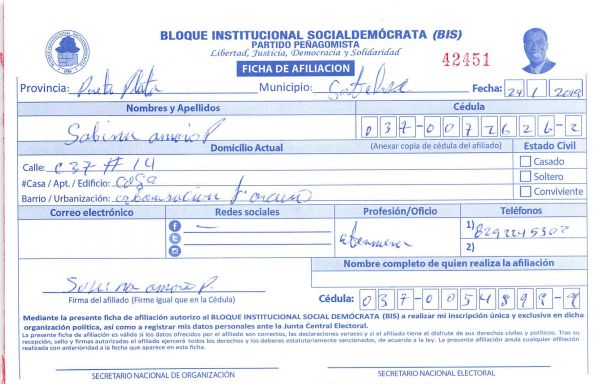 BLOQUE INSTITUCIONAL SOCIALDEMÓCRATA (BIS)
PARTIDO PEÑAGOMISTA
Libertad, Justicia, Democracia y Solidaridad
FICHA DE AFILIACION
42451
Provincia: Puerto Plata Municipio: Fecha: 24 1 2019
Nombres y Apellidos Cédula
Sabina amaro P 037-0072626-2
Domicilio Actual (Anexar copia de cédula del afiliado) Estado Civil
Calle: C 37 # 14 Casado
#Casa / Apt. / Edificio: casa Soltero
Barrio / Urbanización: urbanizacion Conviviente
Correo electrónico Redes sociales Profesión/Oficio Teléfonos
1) 8292245302
2)
Nombre completo de quien realiza la afiliación
Sabina amaro P.
Firma del afiliado (Firme igual que en la Cédula) Cédula: 037-0054899-
Mediante la presente ficha de afiliación autorizo al BLOQUE INSTITUCIONAL SOCIALDEMÓCRATA (BIS) a realizar mi inscripción única y exclusiva en dicha
organización política, así como a registrar mis datos personales ante la Junta Central Electoral.
La presente ficha de afiliación es válida si los datos ofrecidos por el afiliado son correctos, las declaraciones veraces y si el afiliado tiene el disfrute de sus derechos civiles y políticos. Tras su
recepción, sello y firmas autorizadas el afiliado ejercerá todos los derechos y los deberes estatutariamente sancionados, de acuerdo a la ley. La presente afiliación anula cualquier afiliación
realizada con anterioridad a la fecha que aparece en esta ficha.
SECRETARIO NACIONAL DE ORGANIZACIÓN SECRETARIO NACIONAL ELECTORAL